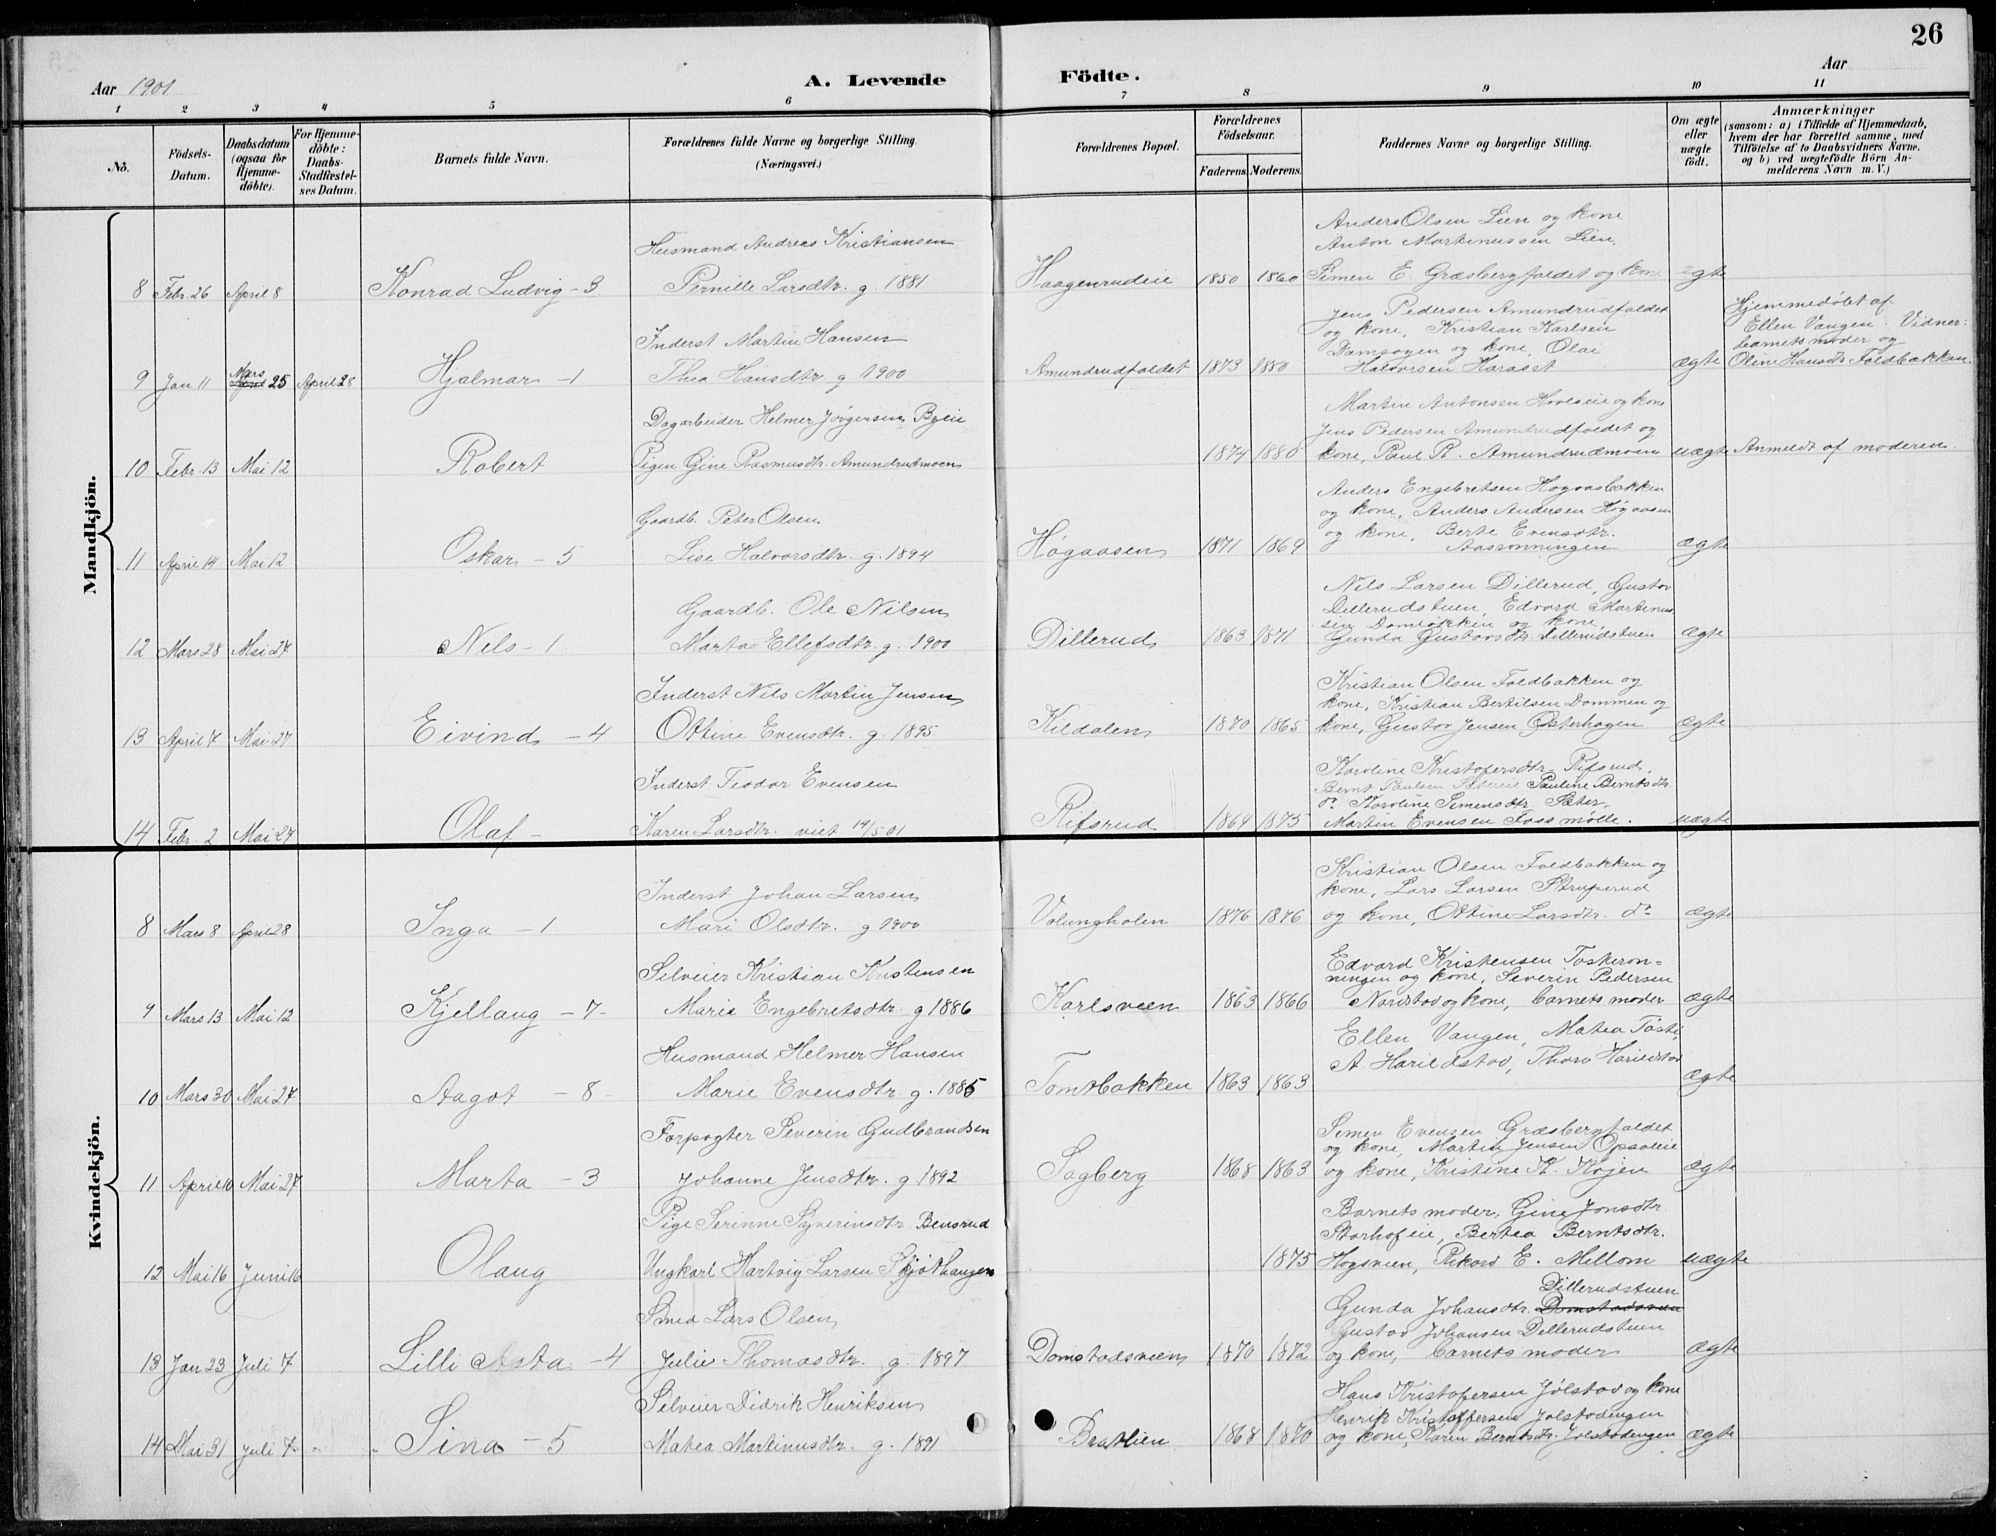 26
Aar 1901
A. Levende Födte.
Aar
1 2 3 4 5 6 7 8 9 10 11
No.
Födsels-Datum.
Daabsdatum (ogsaa for Hjemme-döbte).
For Hjemme-döbte: Daabs-Stadfæstel-ses Datum.
Barnets fulde Navn.
Forældrenes fulde Navne og borgerlige Stilling (Næringsvei.)
Forældrenes Bopæl.
Forældrenes Födselsaar.
Faderens. Moderens.
Faddernes Navne og borgerlige Stilling.
Om ægte eller uægte födt.
Anmærkninger
(saasom: a) i Tilfælde af Hjemmedaab, hvem der har forrettet samme, med Tilföielse af to Daabsvidners Navne, og b) ved uægtefödte Börn Anmelderens Navn m. V.)
Mandkjön.
Anders Olsen Lien og kone
Husmand Andreas Kristiansen Anton Martinussen Lien,
8 Febr. 26 April 8 Konrad Ludvig - 3 Pernille Larsdtr. g. 1881 Haagenrudeie 1850 1860 Simen E. Græsbergfaldet og kone ægte
Jens Pedersen Amundrudfaldet Hjemmedøbt af
Inderst Martin Hansen og kone, Kristian Karlsen Ellen Vangen. Vidner:
Mars Damsagen og kone, Olai barnets moder og
9 Jan 11 April 25 April 28 Hjalmar - 1 Thea Hansdtr. g 1900 Amundrudfaldet 1873 1880 Halvorsen Haraset ægte Oline Hansdtr. Foldbakken.
Martin Antonsen Hovleie og kone
Dagarbeider Helmer Jørgensen Byeie Jens Pedersen Amundrudfaldet og
10 Febr. 13 Mai 12 Robert Pigen Gine Rasmusdtr. Amundrudmoen 1874 1880 kone, Paul R. Amundrudmoen uægte Anmeldt af moderen.
Anders Engebretsen Høgaasbakken
Gaardb. Peter Olsen og kone, Anders Andersen Høgaasen
og kone, Berte Evensdtr.
11 April 14 Mai 12 Oskar - 5 Lise Halvorsdtr. g. 1894 Høgaasen 1871 1869 Aasrønningen ægte
Nils Larsen Dillerud, Gustav
Gaardb. Ole Nilsen Dillerudstuen, Edvard Martinus
sen Domløkken og kone
12 Mars 28 Mai 27 Nels - 1. Marta Ellefsdtr. g. 1900 Dillerud 1863 1871 Gunda Gustavsdtr. Dillerudstuen ægte
Kristian Olsen Foldbakken og
Inderst Nils Martin Jensen kone, Kristian Bertilsen Dommen og
13 April 7 Mai 27 Eivind - 4 Ottine Evensdtr. g. 1895 Kildalen 1870 1865 kone, Gustav Jensen Østerhagen ægte
Karoline Kristofersdtr. Rifsrud,
Inderst Teodor Evensen Bernt Paulsen Sætereie Pauline Berntsdtr.
do Karoline Simensdtr. Sæter,
14 Febr. 2 Mai 27 Olaf - Karen Larsdtr. viet 14/5 01 Rifsrud 1864 1875 Martin Evensen Fossmølle. uægte
Kvindekjön.
Kristian Olsen Foldbakken og
Inderst Johan Larsen kone, Lars Larsen Struperud
8 Mars 8 April 28 Inga - 1 Mari Olsdtr. g 1900 Volungholen 1876 1876 og kone, Ottine Larsdtr. do ægte
Edvard Kristensen Toskeron-
Selveier Kristian Kristensen ningen og kone, Severin Pedersen
9 Mars 13 Mai 12 Kjellaug - 7 - Marie Engebretsdtr. g 1886 Karlsveen 1863 1866 Narustad og kone, barnets moder ægte
Husmand Helmer Hansen Ellen Vangen, Matea Toste,
A. Harildstad, Thora Harildstad
10 Mars 30 Mai 27 Aagot - 8 - Marie Evensdtr. g. 1885 Tomtbakken 1863 1863 ægte
Forpagter Severin Gudbrandsen Simen Evensen Græsbergfaldet
og kone, Martin Jensen Opsaleie
11 April 10 Mai 27 Marta - 3 Johanne Jensdtr. g 1892 Sagberg 1868 1863 og kone, Kristine K. Højen ægte
Pige Serinne Syverinsdtr. Bensrud Barnets moder, Gine Jonsdtr.
Storhofeie, Bertea Berntsdtr.
12 Mai 16 Juni 16 Olaug Ungkarl Hartvig Larsen Skjøthaugen 1875 Hogsveen, Rikard E. Mellom uægte
Dillerudstuen
Smed Lars Olsen Gunda Johansdtr. Domstadsveen
Gustav Johansen Dillerudstuen
13 Jan 23 Juli 7 Lilli Asta - 4 Julie Thomasdtr. g. 1897 Domstadsveen 1870 1872 og kone, barnets moder ægte
Hans Kristofersen Jølstad og kone
Selveier Didrik Henriksen Henrik Kristoffersen Jølstadengen
14 Mai 31 Juli 7 Sina - 5 Matea Martinusdtr. g. 1891 Bratlien 1868 1870 og kone, Karen Berntsdtr. Jølstadengen ægte